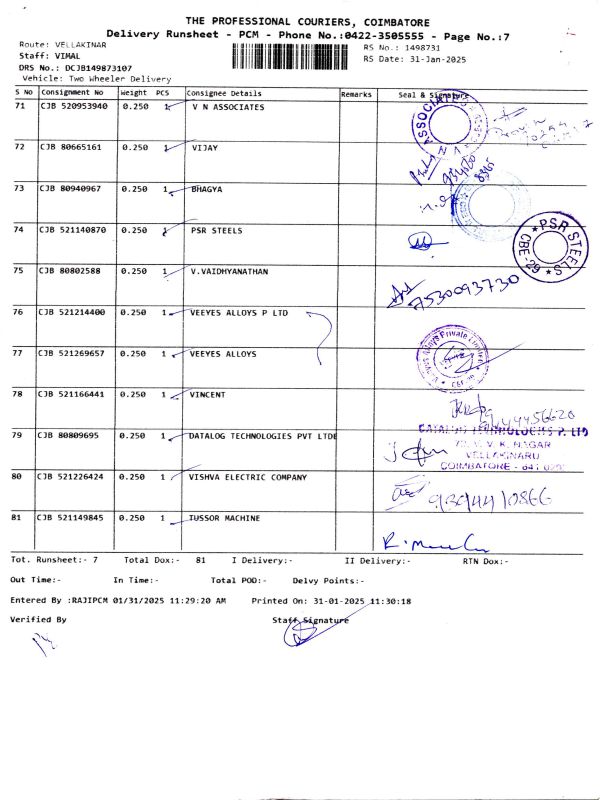 THE PROFESSIONAL COURIERS, COIMBATORE
Delivery Runsheet - PCM - Phone No.:0422-3505555 - Page No.:7
Route: VELLAKINAR
RS No.: 1498731
Staff: VIMAL
RS Date: 31-Jan-2025
DRS No.: DCJB149873107
Vehicle: Two Wheeler Delivery
S No Consignment No Weight PCS Consignee Details Remarks Seal & Signature
71 CJB 520953940 0.250 1 V N ASSOCIATES
ASSOCIATE
72 CJB 80665161 0.250 1 VIJAY
73 CJB 80940967 0.250 1 BHAGYA
74 CJB 521140870 0.250 1 PSR STEELS
PSR STEELS CBE-29
75 CJB 80802588 0.250 1 V.VAIDHYANATHAN
7530093730
76 CJB 521214400 0.250 1 VEEYES ALLOYS P LTD
77 CJB 521269657 0.250 1 VEEYES ALLOYS
78 CJB 521166441 0.250 1 VINCENT
79 CJB 80809695 0.250 1 DATALOG TECHNOLOGIES PVT LTDE
DATALOG TECHNOLOGIES P. LTD
V. K. NAGAR
VELLAKINARU
COIMBATORE - 641 029
80 CJB 521226424 0.250 1 VISHVA ELECTRIC COMPANY
81 CJB 521149845 0.250 1 TUSSOR MACHINE
Tot. Runsheet:- 7 Total Dox:- 81 I Delivery:- II Delivery:- RTN Dox:-
Out Time:- In Time:- Total POD:- Delvy Points:-
Entered By :RAJIPCM 01/31/2025 11:29:20 AM Printed On: 31-01-2025 11:30:18
Verified By Staff Signature